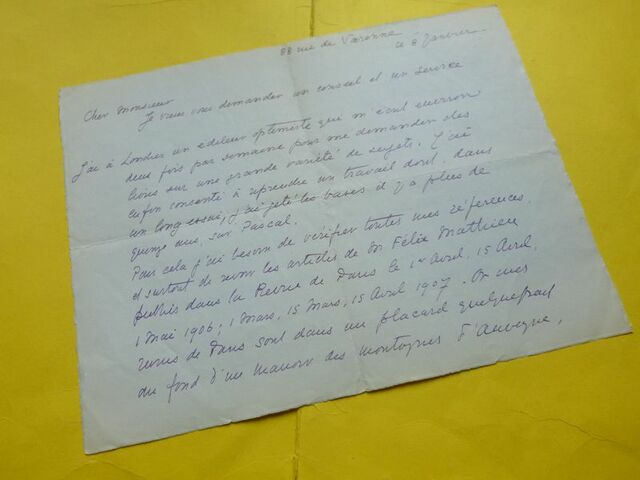 88 rue de Varenne
ce 8 Janvier
Cher Monsieur
Je viens vous demander un conseil et un service
J'ai à Londres un editeur optimiste qui m'écrit environ
deux fois par semaine pour me demander des
livres sur une grande variété de sujets. J'ai
enfin consenti à reprendre un travail dont, dans
un long essai, j'ai jeté les bases il y a plus de
quinze ans, sur Pascal.
Pour cela j'ai besoin de vérifier toutes mes références
et surtout de les articles de M. Félix Mathieu
publiés dans la Revue de Paris le 1er Avril, 15 Avril,
1 Mai 1906; 1 Mars, 15 Mars, 15 Avril 1907. Or mes
revues de Paris sont dans un placard quelquepart
au fond d'un manoir des montagnes d'Auvergne,